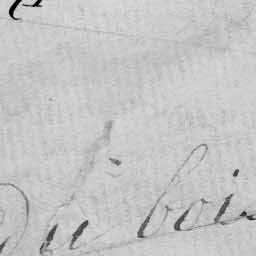 du bois